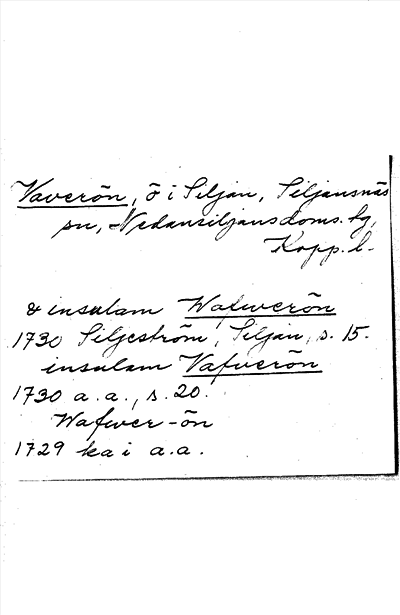 Vaverön, ö i Siljan, Siljansnäs
sn, Nedansiljans doms. fg,
Kopp. l.
& insulam Wafwerön
1730 Siljeström, Siljan, s. 15.
insulam Vafverön
1730 a. a., s. 20.
Wafwer-ön
1729 ka i a.a.